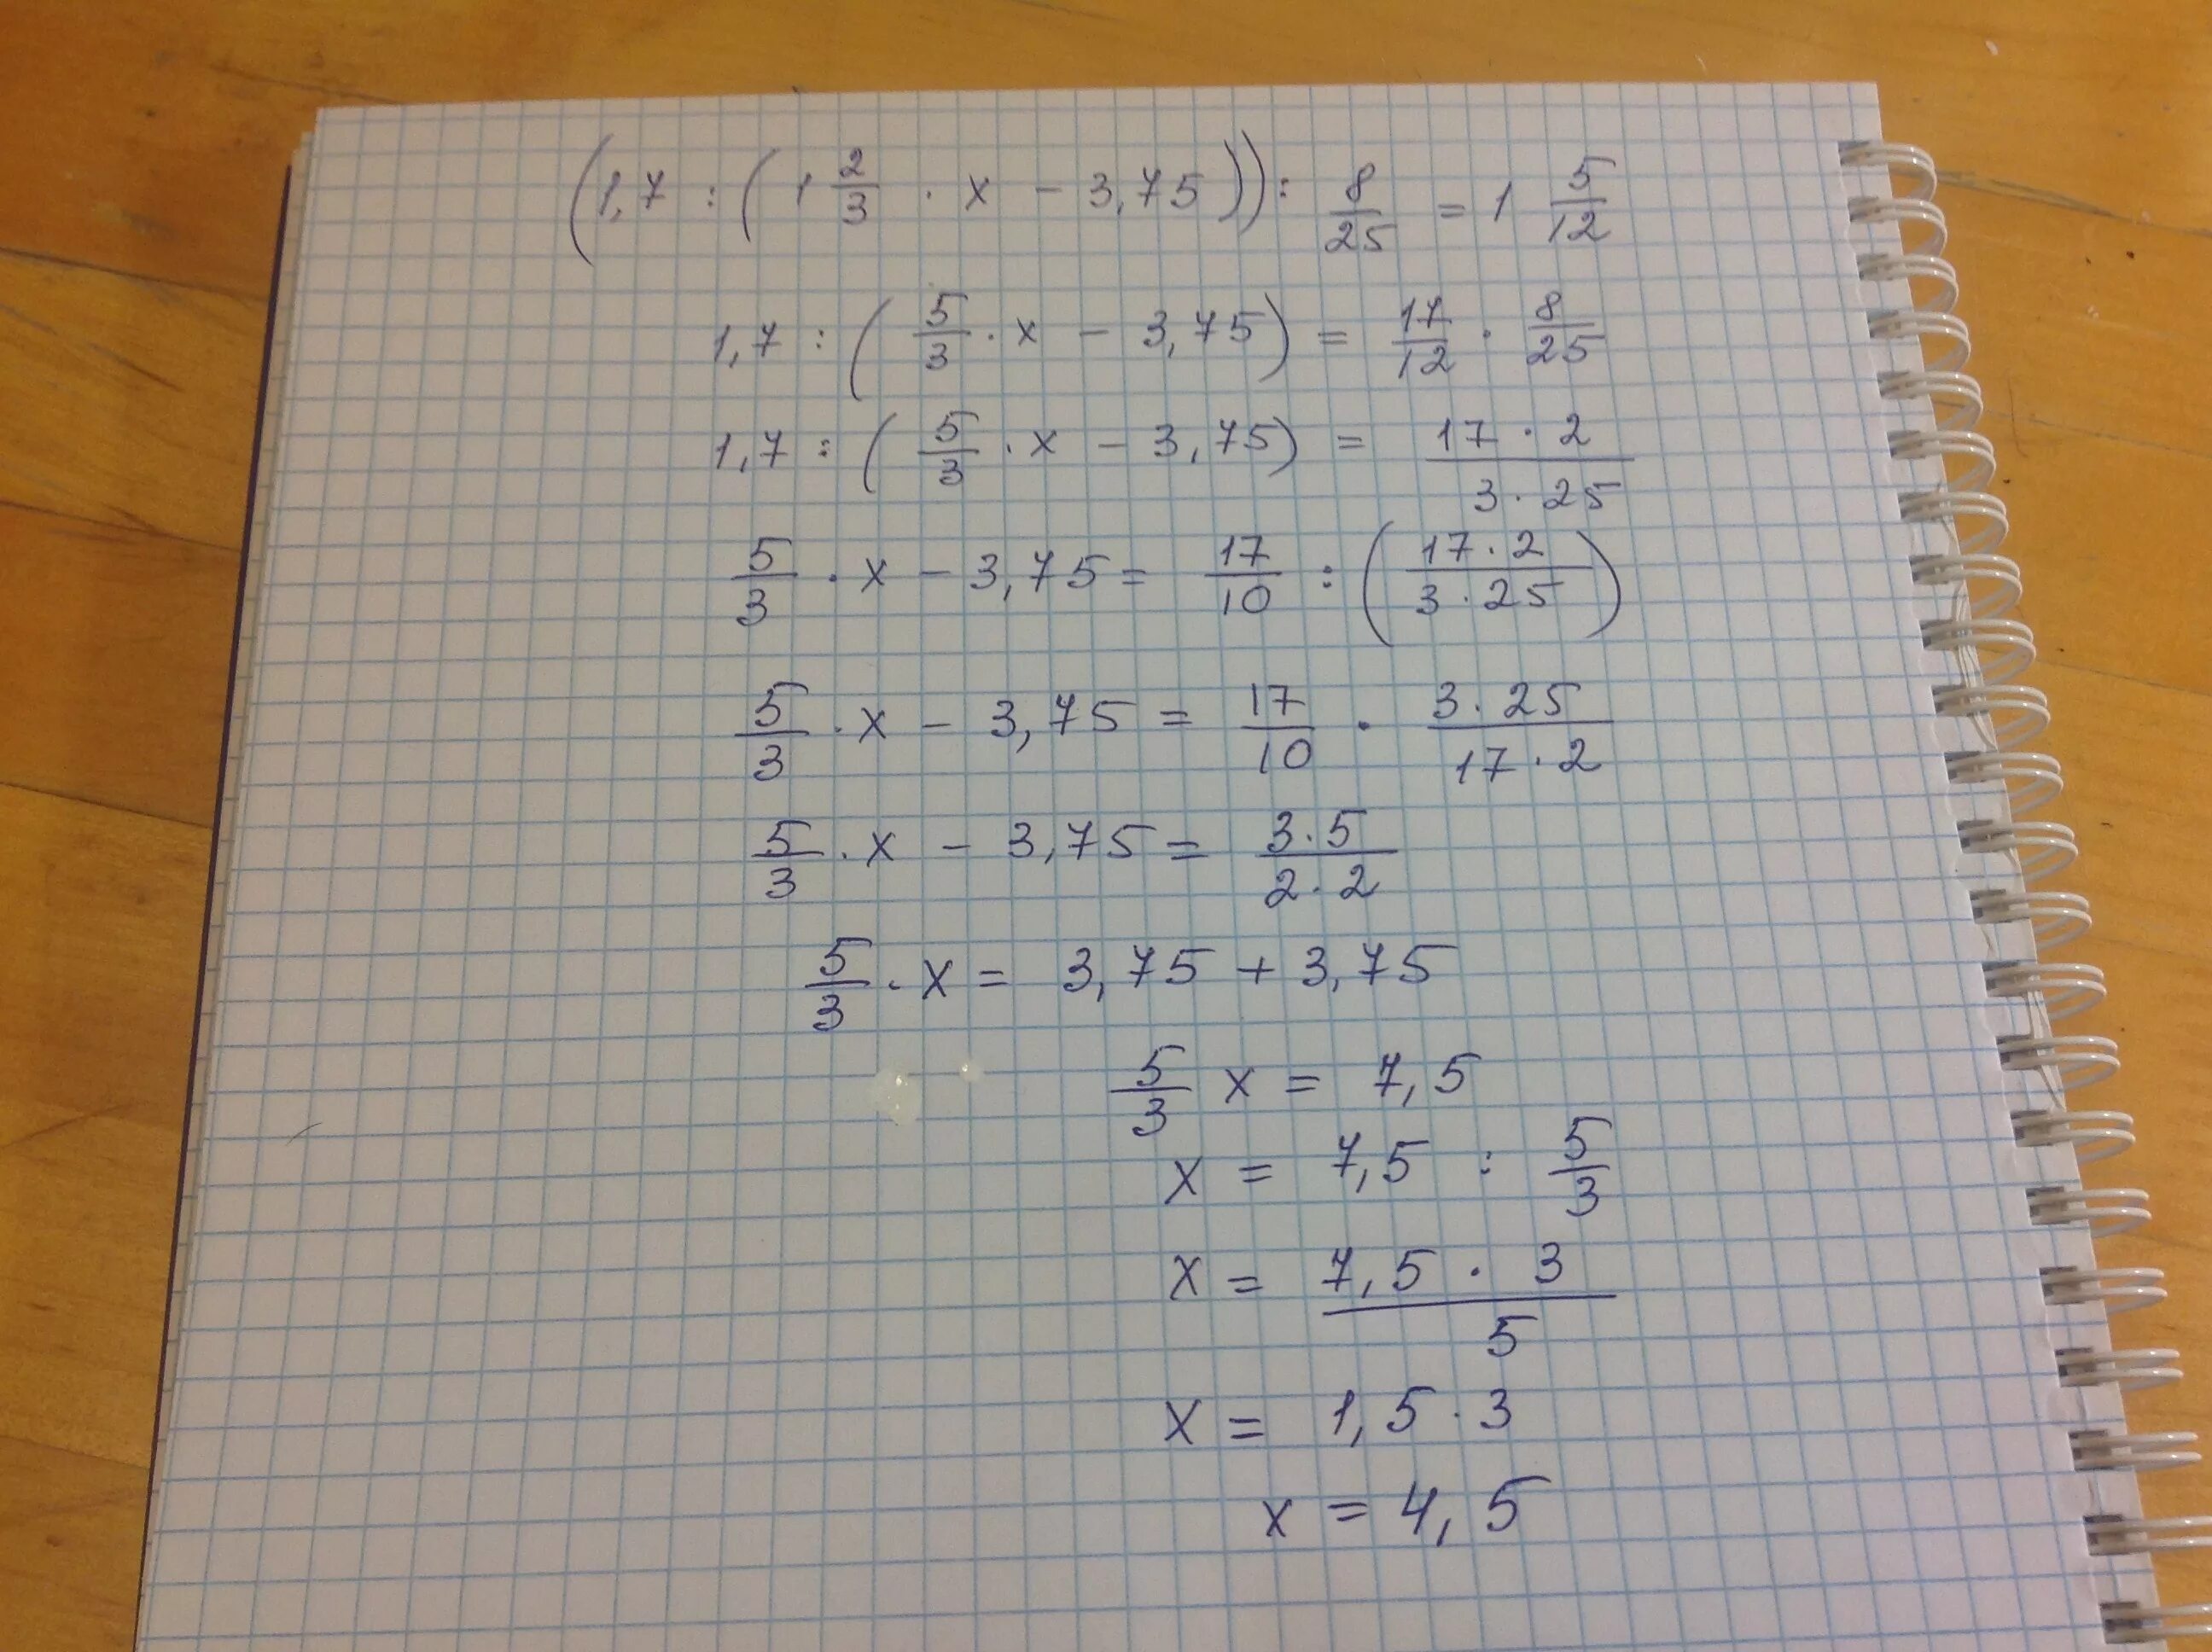 (1,7 : (1 2/3 · x - 3,75)) : 8/25 = 1 5/12
1,7 : (5/3 · x - 3,75) = 17/12 · 8/25
1,7 : (5/3 · x - 3,75) = 17·2/3·25
5/3 · x - 3,75 = 17/10 : (17·2/3·25)
5/3 · x - 3,75 = 17/10 · 3·25/17·2
5/3 · x - 3,75 = 3·5/2·2
5/3 · x = 3,75 + 3,75
5/3 x = 7,5
x = 7,5 : 5/3
x = 7,5 · 3/5
x = 1,5 · 3
x = 4,5